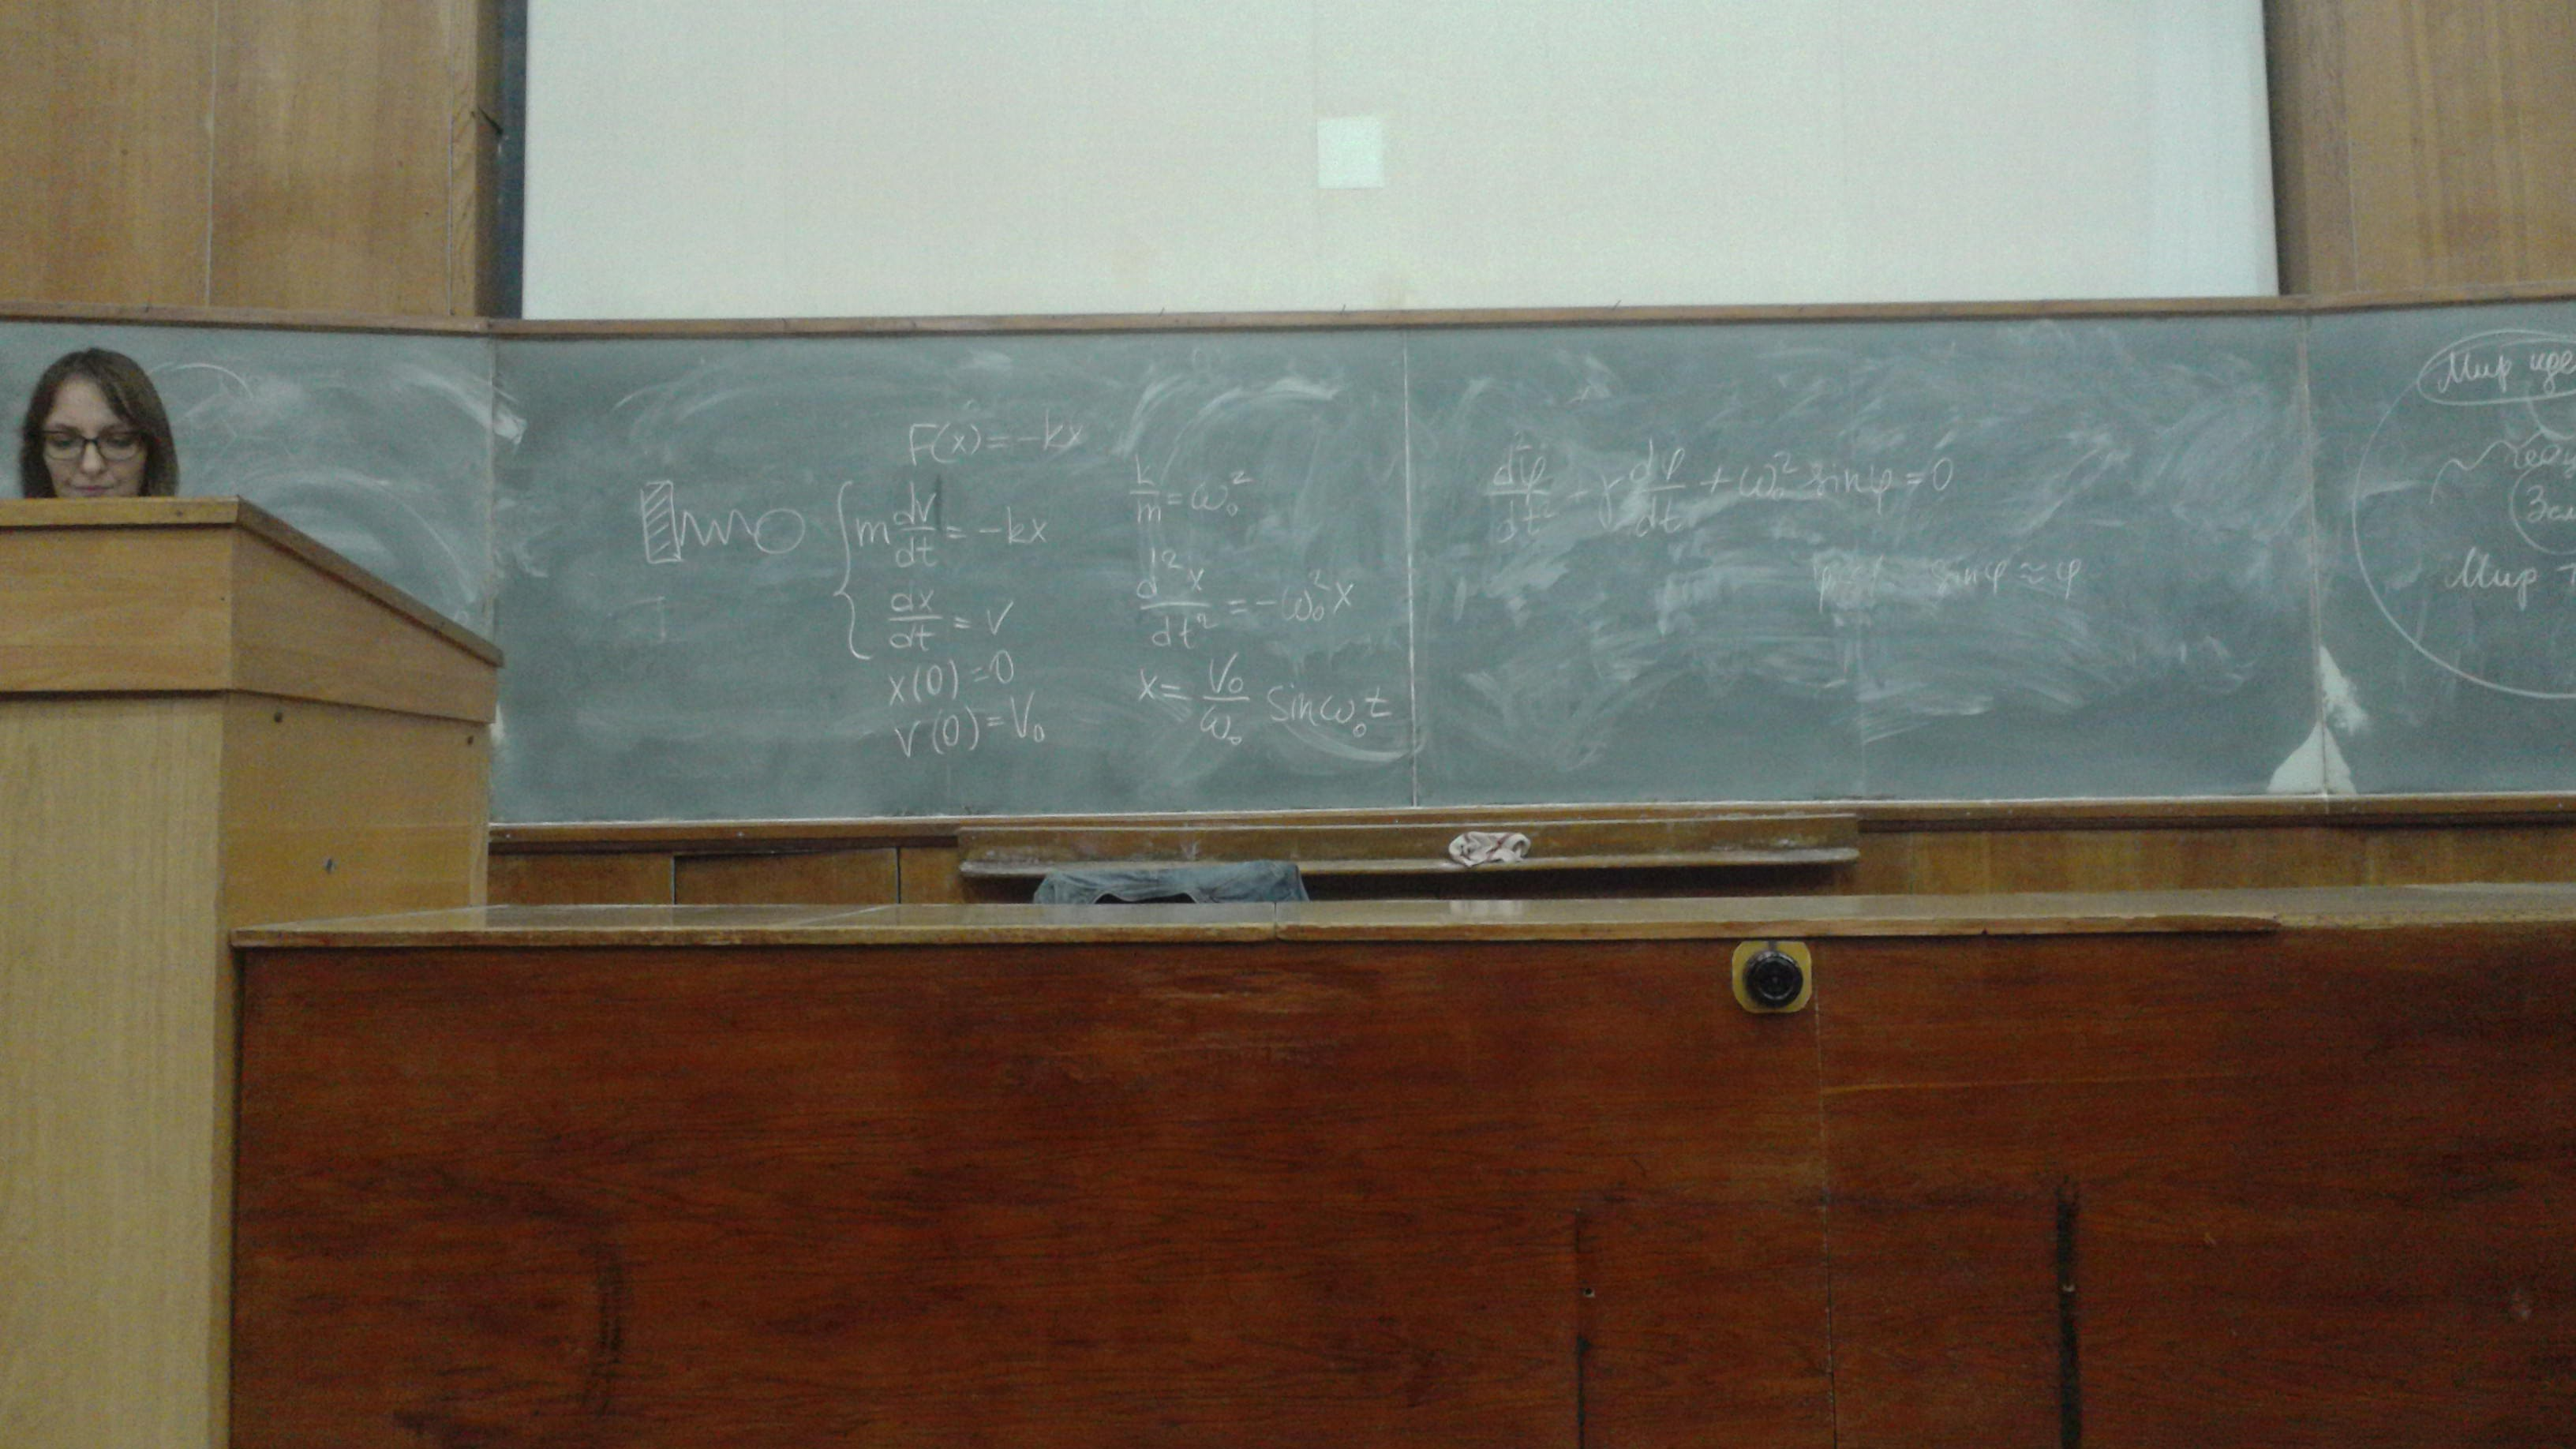 F(x) = -kx
m dv/dt = -kx
dx/dt = v
x(0) = 0
v(0) = V₀
k/m = ω₀²
d²x/dt² = -ω₀²x
x = V₀/ω₀ sin ω₀t
dφ/dt + ω₀² sinφ = 0
sinφ ≈ φ
Мир
Мир